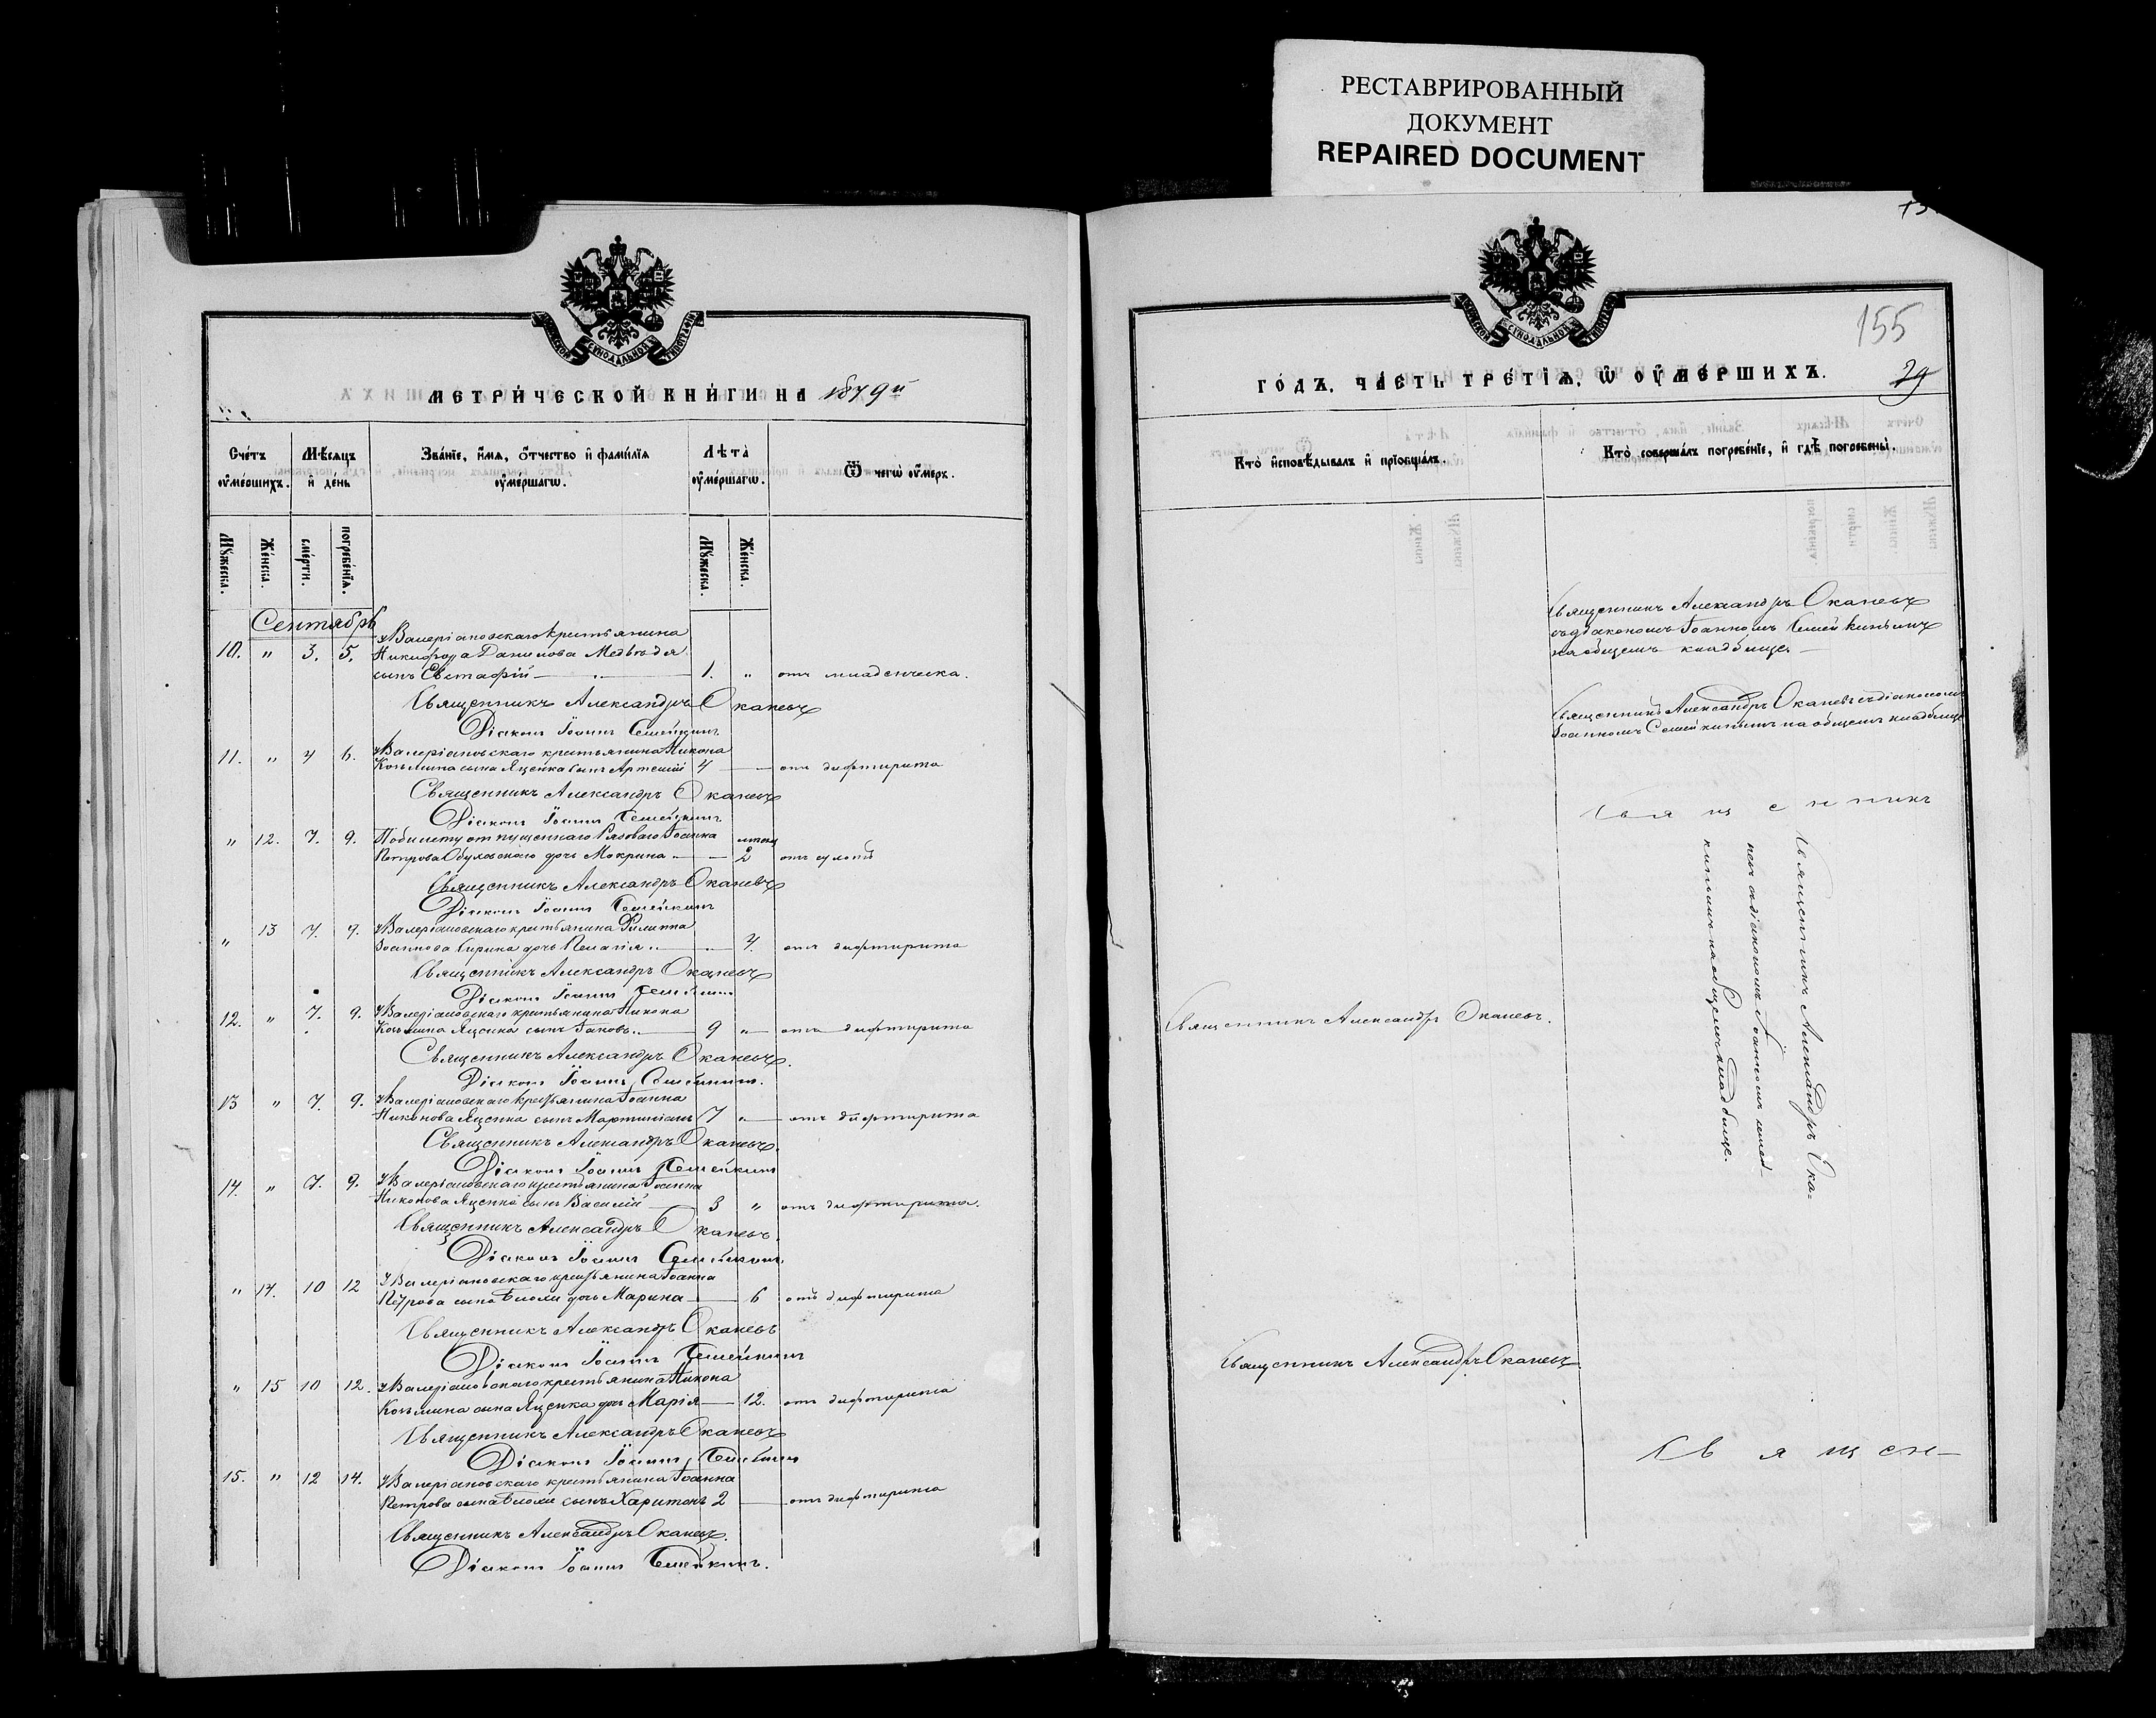 РЕСТАВРИРОВАННЫЙ
ДОКУМЕНТ
REPAIRED DOCUMENT
МЕТРИ́ЧЕСКОЙ КНИ́ГИ НА 1879й
Сче́тъ ᲂу҆ме́ршихъ.
Мѣ́сяцъ и҆ де́нь
Зва́нїе, и҆́мѧ, ѻ҆́тчество и҆ фами́лїѧ ᲂу҆ме́ршагѡ.
Лѣ́та ᲂу҆ме́ршагѡ.
Ѿ чегѡ̀ ᲂу҆́меръ.
Мꙋ́жеска.
Же́нска.
сме́рти.
погребе́нїѧ.
Мꙋ́жеска.
Же́нска.
Сентябрь
10. " 3. 5. у Валеріановскаго крестьянина
Никифора Данилова Медвѣдя
сынъ Евстафій 1. " отъ младенческа.
Священникъ Александръ Оканевъ
Діаконъ Іоаннъ Семейкинъ
11. " 4 6. у Валеріановскаго крестьянина Никона
Козьмина сына Яценка сынъ Артемій 4 отъ дифтирита
Священникъ Александръ Оканевъ
Діаконъ Іоаннъ Семейкинъ
" 12. 7. 9. По билету отпущеннаго Рядоваго Іоанна
Петрова Обуховскаго дочь Мокрина 2
Священникъ Александръ Оканевъ
Діаконъ Іоаннъ Семейкинъ
" 13 7. 9. у Валеріановскаго крестьянина Филиппа
Іоаннова дочь Пелагія 4. отъ дифтирита
Священникъ Александръ Оканевъ
Діаконъ Іоаннъ Семейкинъ
12. " 7. 9. у Валеріановскаго крестьянина Никона
Козьмина Яценка сынъ Іаковъ 9 " отъ дифтирита
Священникъ Александръ Оканевъ.
Діаконъ Іоаннъ Семейкинъ.
13 " 7. 9. у Валеріановскаго крестьянина Іоанна
Никонова Яценка сынъ Мартиніанъ 7 " отъ дифтирита
Священникъ Александръ Оканевъ.
Діаконъ Іоаннъ Семейкинъ
14. " 7. 9. у Валеріановскаго крестьянина Іоанна
Никонова Яценка сынъ Василій 3 " отъ дифтирита.
Священникъ Александръ Оканевъ.
Діаконъ Іоаннъ Семейкинъ.
" 14. 10 12 у Валеріановскаго крестьянина Іоанна
Петрова сына дочь Марина 6 отъ дифтирита
Священникъ Александръ Оканевъ
Діаконъ Іоаннъ Семейкинъ
" 15 10 12. у Валеріановскаго крестьянина Никона
Козьмина сына Яценка дочь Марія 12. отъ дифтирита
Священникъ Александръ Оканевъ
Діаконъ Іоаннъ Семейкинъ
15. " 12 14. у Валеріановскаго крестьянина Іоанна
Петрова сына сынъ Харитонъ 2 отъ дифтирита
Священникъ Александръ Оканевъ.
Діаконъ Іоаннъ Семейкинъ.
155
29
ГО́ДЪ. ЧА́СТЬ ТРЕ́ТЇѦ, Ѡ҆ ОУ҆МЕ́РШИХЪ.
Кто̀ и҆сповѣ́дывалъ и҆ прїѡбща́лъ.
Кто̀ соверша́лъ погребе́нїе, и҆ гдѣ̀ погребены̀.
Священникъ Александръ Оканевъ
съ діакономъ Іоанномъ Семейкинымъ
на общемъ кладбище.
Священникъ Александръ Оканевъ съ діакономъ
Іоанномъ Семейкинымъ на общемъ кладбище
Священникъ
Священникъ Александръ Ока=
невъ съ діакономъ Іоанномъ Семей-
кинымъ на общемъ кладбище.
Священникъ Александръ Оканевъ.
Священникъ Александръ Оканевъ
Священ-